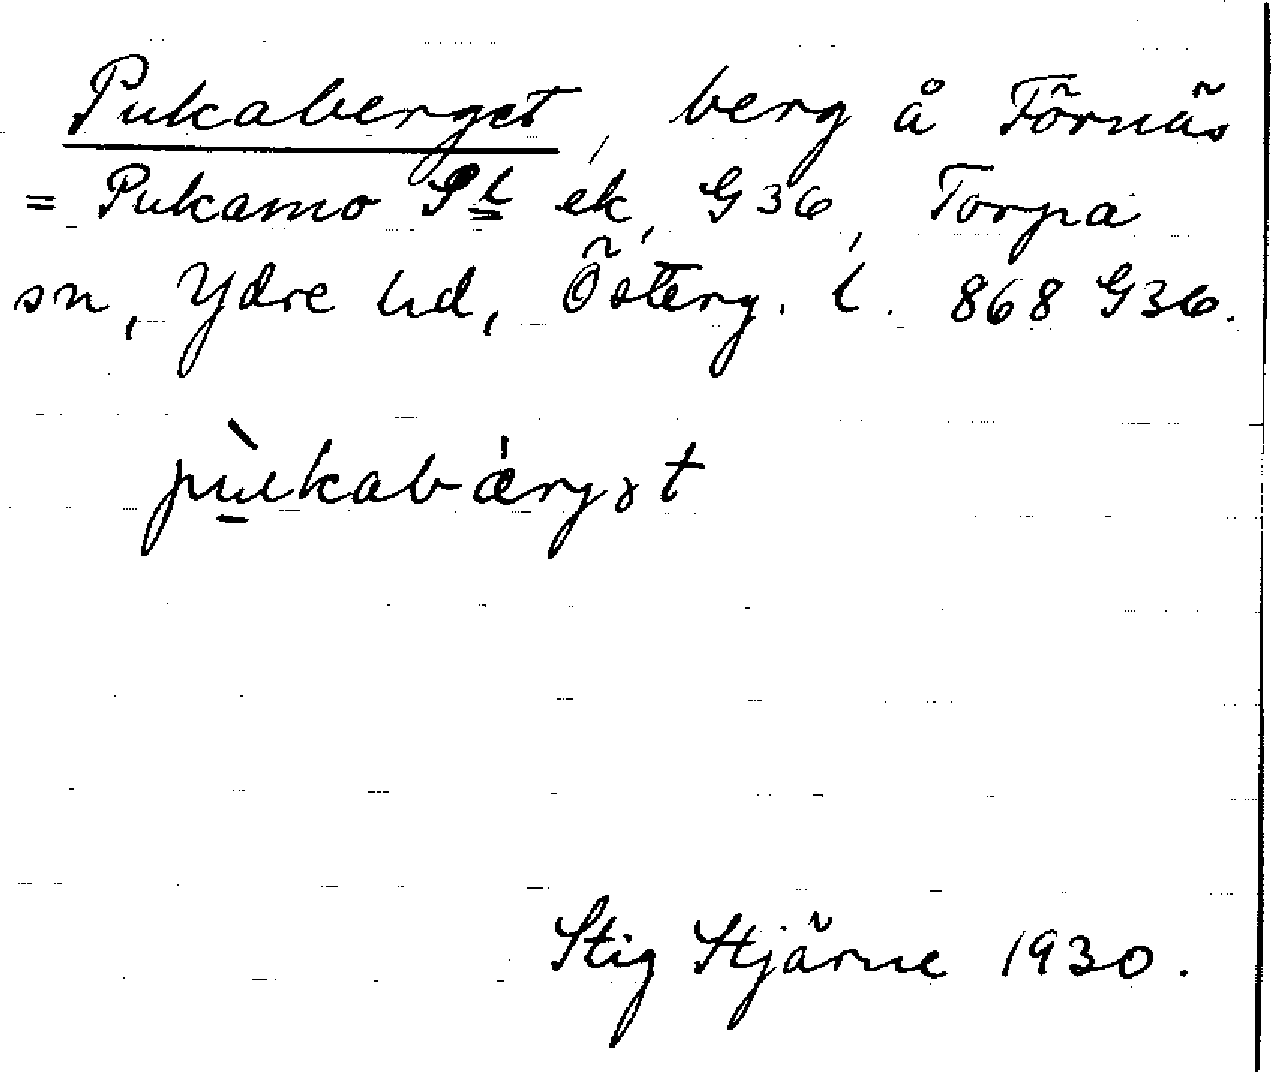 Pukaberget, berg å Förnäs
= Pukamo Pl ek, G36, Torpa
sn, Ydre hd, Österg. l. 868 G36.
pu̠̇kabærgət
Stig Stjärne 1930.